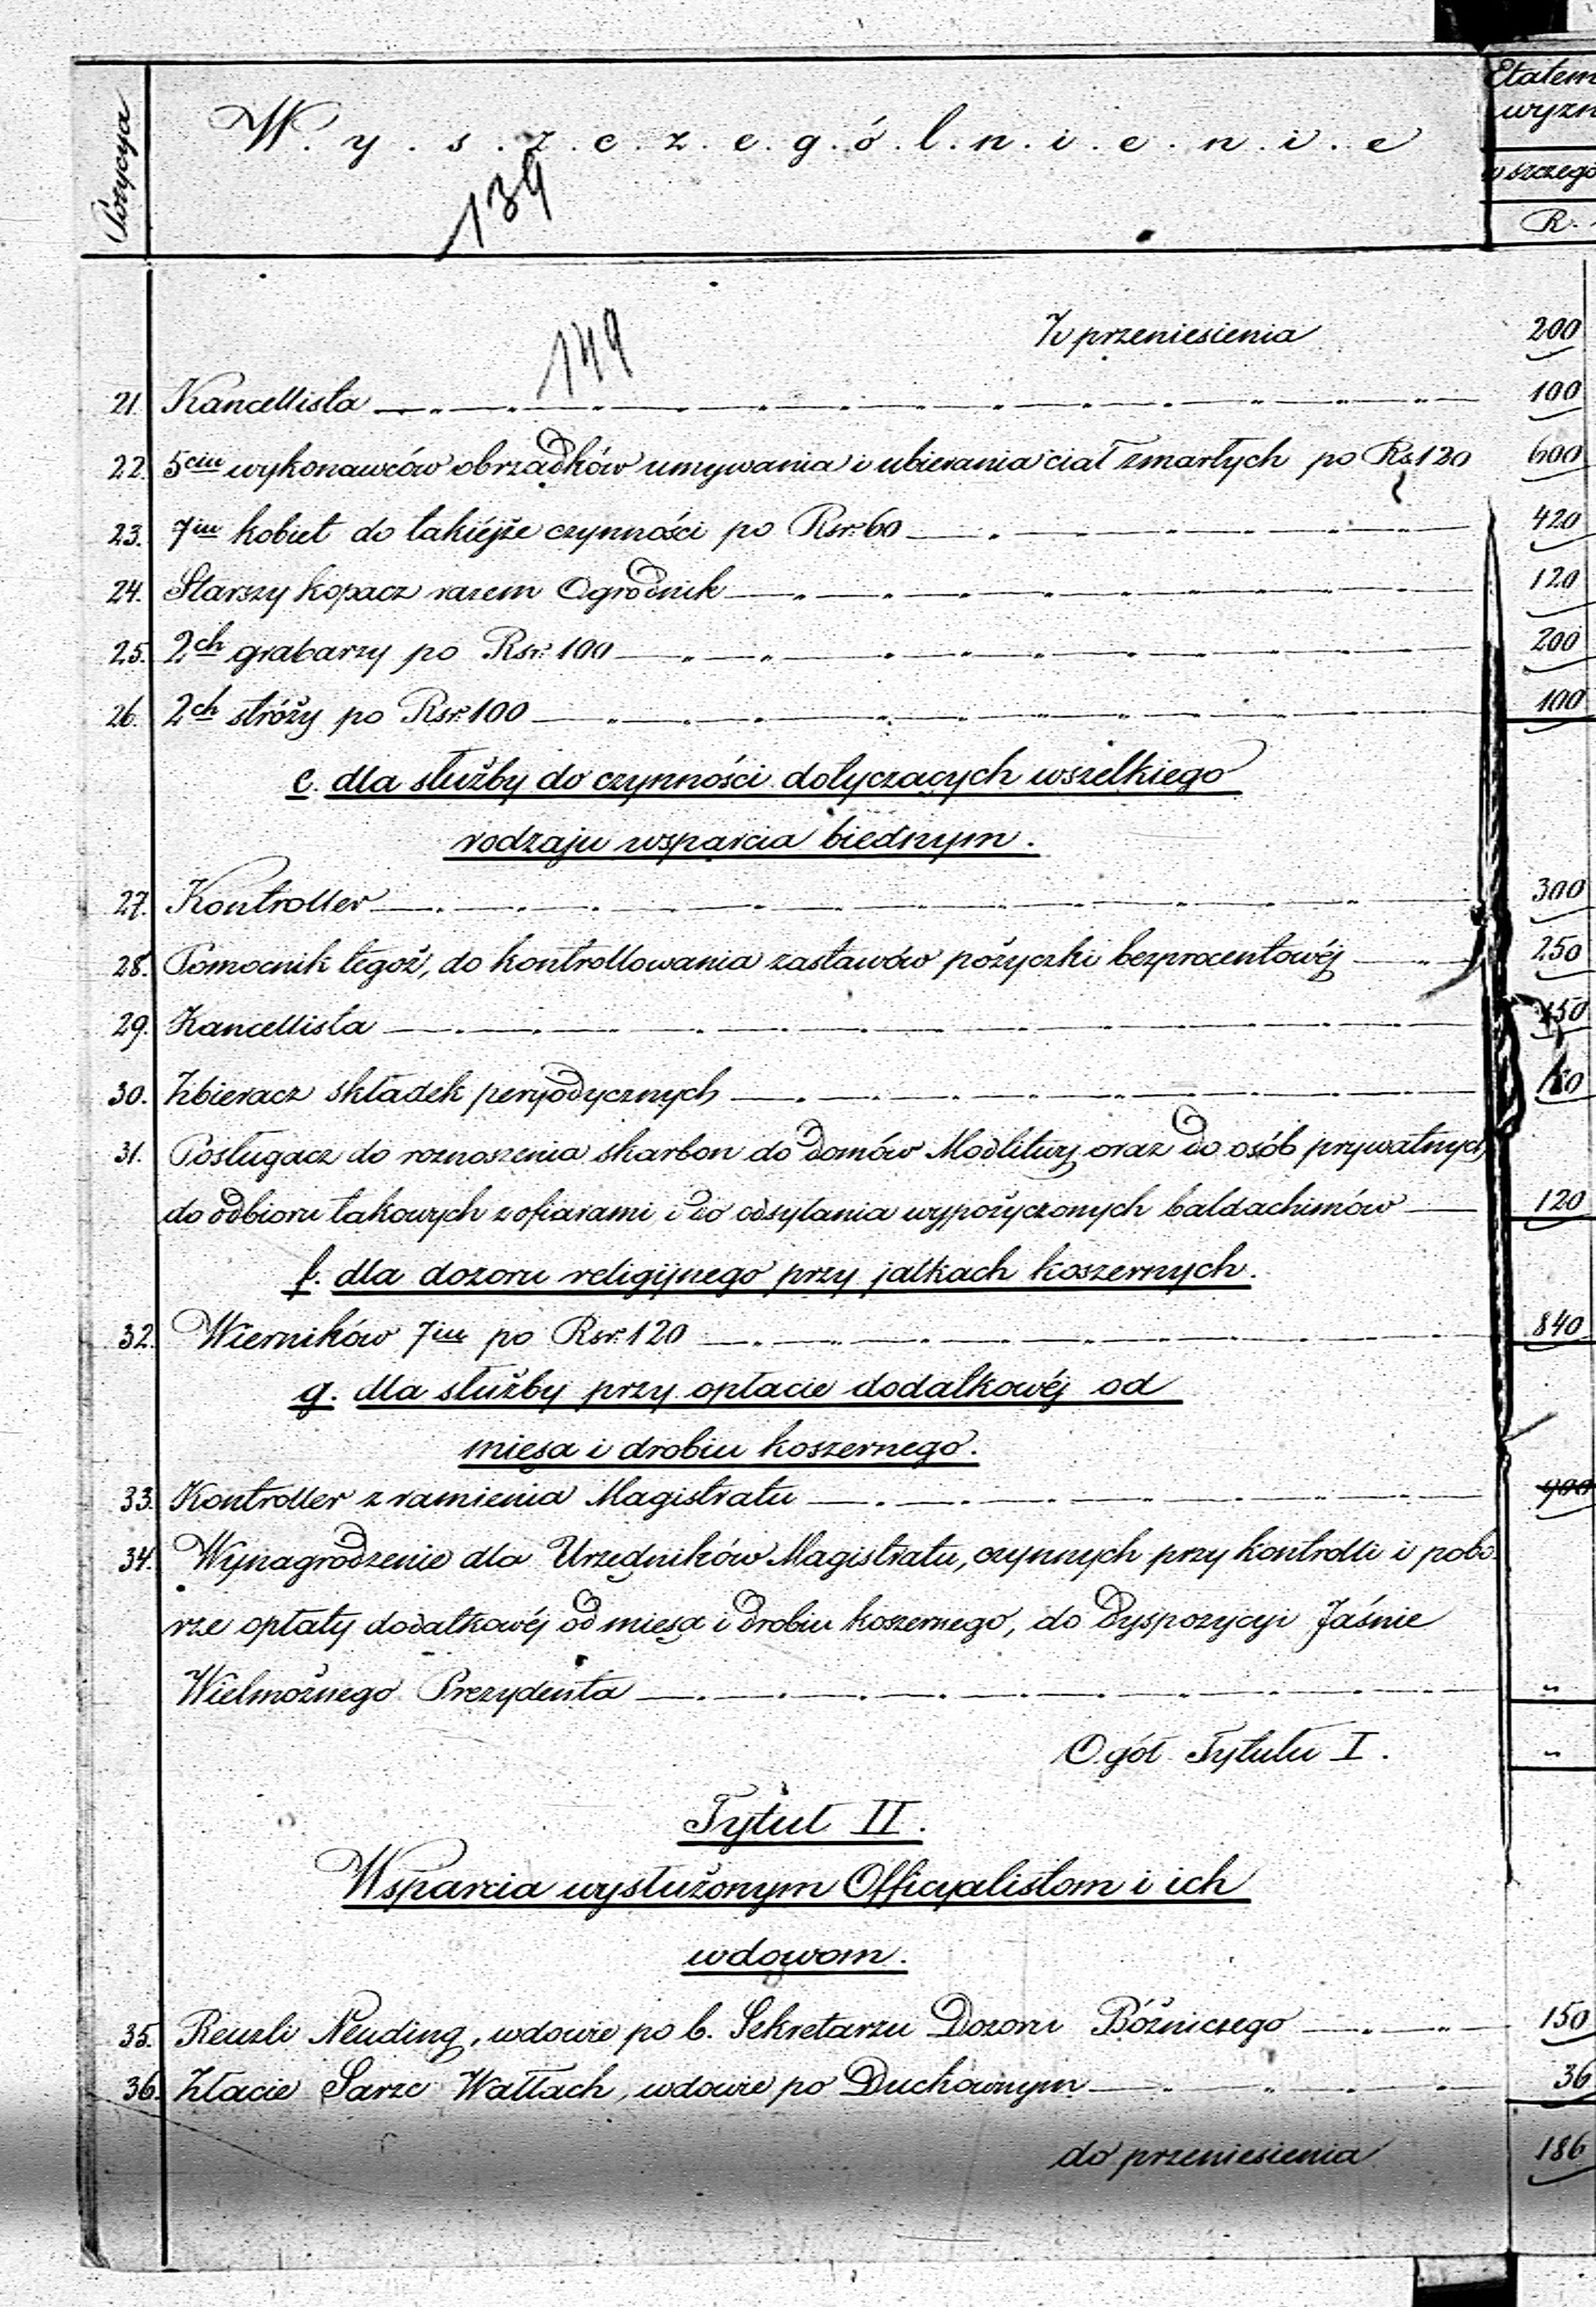 Pozycya
W.y.s.z.c.z.e.g.ó.l.n.i.e.n.i.e
Etatem
wyzn
w szczegó
R.
139
149
Z przeniesienia 200
21. Kancellista 100
22. 5ciu wykonawców obrzadków umywania i ubierania ciał zmarłych po Rs 120 600
23. 7iu kobiet do takiéjże czynności po Rsr. 60 420
24. Starszy kopacz razem Ogrodnik 120
25. 2ch grabarzy po Rsr. 100 200
26. 2ch stróży po Rsr. 100 100
e. dla służby do czynności dotyczących wszelkiego
rodzaju wsparcia biednym.
27. Kontroller 300
28. Pomocnik tegoż, do kontrollowania zastawów pożyczki bezprocentowéj 250
29. Kancellista 150
30. Zbieracz składek peryodycznych
31. Posługacz do roznoszenia skarbon do domów Modlitwy oraz do osób prywatnych
do odbioru takowych z ofiarami i do odsyłania wypożyczonych baldachimów 120
f. dla dozoru religijnego przy jatkach koszernych.
32. Wierników 7iu po Rsr. 120 840
g. dla służby przy opłacie dodatkowéj od
mięsa i drobiu koszernego.
33. Kontroller z ramienia Magistratu 900
34. Wynagrodzenie dla Urzędników Magistratu, czynnych przy kontrolli i pobo
rze opłaty dodatkowéj od mięsa i drobiu koszernego, do dyspozycyi Jaśnie
Wielmożnego Prezydenta "
Ogół Tytułu I. "
Tytuł II.
Wsparcia wysłużonym Officyalistom i ich
wdowom.
35. Reuzli Neuding, wdowie po b. Sekretarzu Dozoru Bóźniczego 150
36. Złacie Sarze Wałłach, wdowie po Duchownym 36
do przeniesienia 186